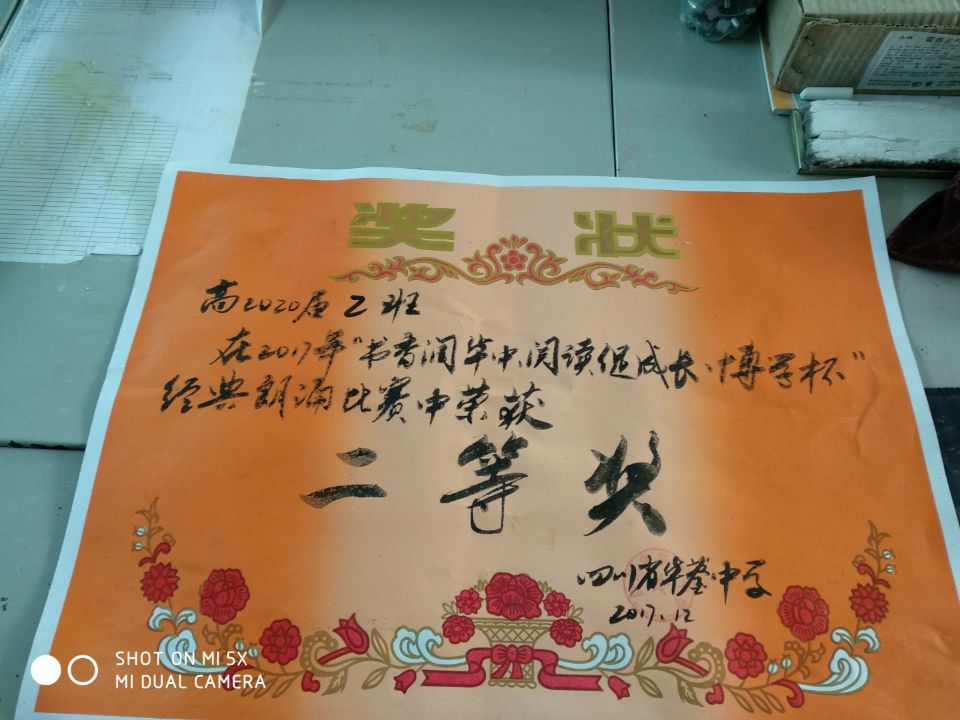 奖 状
高2020届2班
在2017年“书香润华中,阅读促成长·博学杯”
经典朗诵比赛中荣获
二等奖
四川省华蓥中学
2017.12
SHOT ON MI 5X
MI DUAL CAMERA